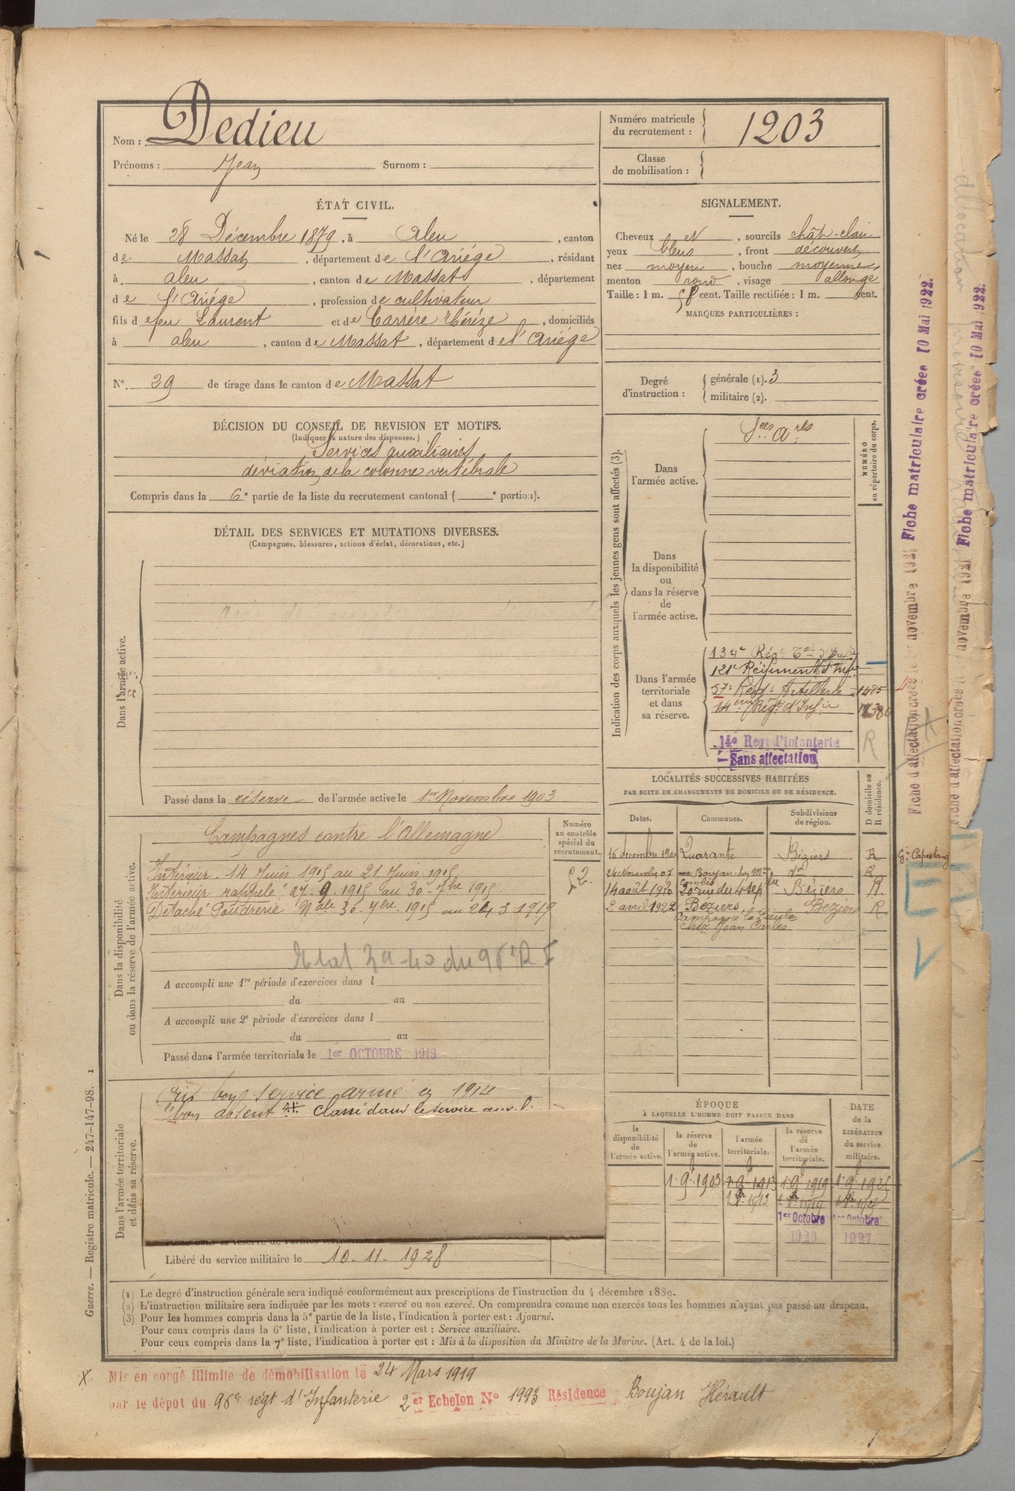 Nom : Dedieu
Prénoms : Jean Surnom :
Numéro matricule du recrutement : 1203
Classe de mobilisation :
ÉTAT CIVIL.
Né le 28 Décembre 1879, à Aleu, canton
de Massat, département de l'Ariége, résidant
à aleu, canton de Massat, département
de l'Ariége, profession de cultivateur
fils de feu Laurent et de Carrère Thérèze, domiciliés
à aleu, canton de Massat, département de l'Ariége
N° 29 de tirage dans le canton de Massat
SIGNALEMENT.
Cheveux N, sourcils chât-clair
yeux bleus, front découvert
nez moyen, bouche moyenne
menton rond, visage allongé
Taille : 1 m. 58 cent. Taille rectifiée : 1 m. cent.
MARQUES PARTICULIÈRES :
Degré d'instruction : générale (1). 3
militaire (2).
DÉCISION DU CONSEIL DE REVISION ET MOTIFS.
(Indiquer la nature des dispenses.)
Services auxiliaires
déviation de la colonne vertébrale
Compris dans la 6e partie de la liste du recrutement cantonal ( e portion).
DÉTAIL DES SERVICES ET MUTATIONS DIVERSES.
(Campagnes, blessures, actions d'éclat, décorations, etc.)
Dans l'armée active.
Passé dans la réserve de l'armée active le 1er Novembre 1903
Indication des corps auxquels les jeunes gens sont affectés (3).
NUMÉRO au répertoire du corps.
Dans l'armée active.
Dans la disponibilité ou dans la réserve de l'armée active.
Dans l'armée territoriale et dans sa réserve.
134e Rég.
121e Régiment d'Inf.
57e Rég. Artillerie
14eme Régt d'Infie
14e Regt d'Infanterie
Sans affectation
LOCALITÉS SUCCESSIVES HABITÉES
PAR SUITE DE CHANGEMENTS DE DOMICILE OU DE RÉSIDENCE.
D domicile ou R résidence.
Dates. Communes. Subdivisions de région.
Quarante Béziers R
Béziers R
2 avril 1922 Béziers Béziers R
chez Jean
Dans la disponibilité ou dans la réserve de l'armée active.
Numéro au contrôle spécial du recrutement.
Campagnes contre l'Allemagne
Intérieur - 14 Juin 1915 au 21 Juin 1915
Intérieur rappelé 27-9-1915 au 30-7bre 1915
Détaché Poudrerie Nale 30-7bre-1915 au 24 3 1919
A accompli une 1re période d'exercices dans l
du au
A accompli une 2e période d'exercices dans l
du au
Passé dans l'armée territoriale le 1er OCTOBRE 1913
Dans l'armée territoriale et dans sa réserve.
bon service armé en 1914
bon absent classé dans le service auxil.
Libéré du service militaire le 10-11-1928
ÉPOQUE
À LAQUELLE L'HOMME DOIT PASSER DANS
DATE de la LIBÉRATION du service militaire.
la disponibilité de l'armée active.
la réserve de l'armée active.
l'armée territoriale.
la réserve de l'armée territoriale.
1er Octobre 1er Octobre
1920 1927
(1) Le degré d'instruction générale sera indiqué conformément aux prescriptions de l'instruction du 4 décembre 1889.
(2) L'instruction militaire sera indiquée par les mots : exercé ou non exercé. On comprendra comme non exercés tous les hommes n'ayant pas passé au drapeau.
(3) Pour les hommes compris dans la 5e partie de la liste, l'indication à porter est : Ajourné.
Pour ceux compris dans la 6e liste, l'indication à porter est : Service auxiliaire.
Pour ceux compris dans la 7e liste, l'indication à porter est : Mis à la disposition du Ministre de la Marine. (Art. 4 de la loi.)
Guerre. — Registre matricule. — 247-147-98. 1
X Mis en congé illimité de démobilisation le 24 Mars 1919
par le dépot du 96e régt d'Infanterie 2er Echelon N° 1993 Résidence Boujan Hérault
Fiche matriculaire créée 10 Mai 1922.
Fiche matriculaire créée 10 Mai 1922.